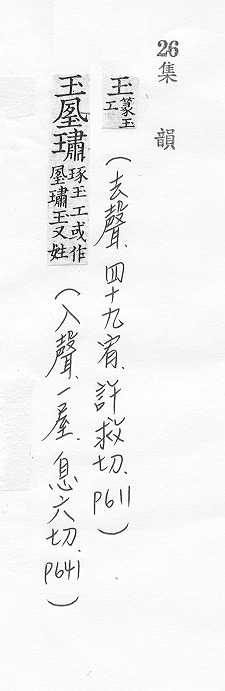 26 集韻
玊 篆玉工 (去聲.四十九宥.許救切.P611)
玊 璛 琢玉工或作璛玊又姓 (入聲.一屋.息六切.P641)